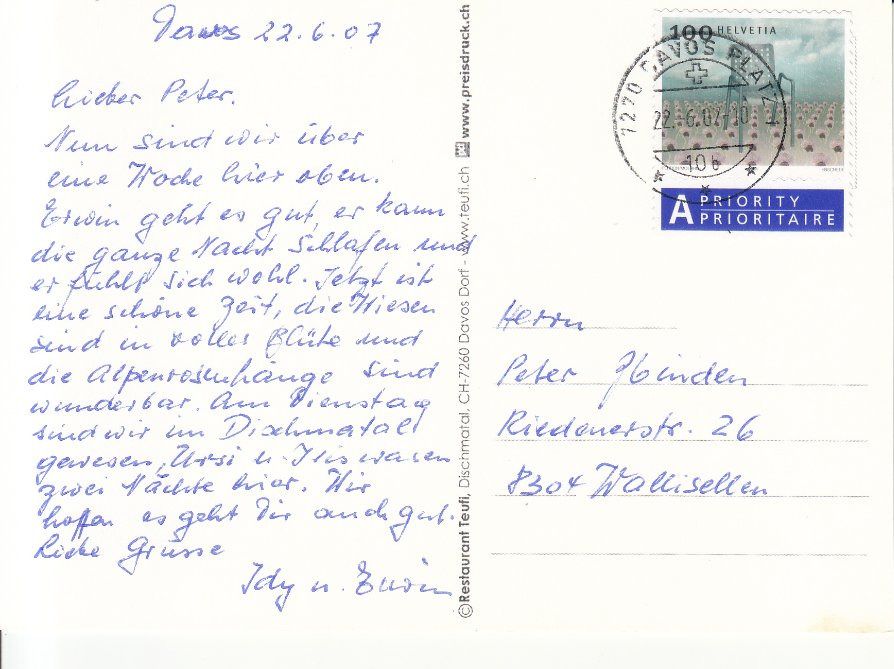 Davos 22.6.07
Lieber Peter.
Nun sind wir über
eine Woche hier oben.
Erwin geht es gut, er kann
die ganze Nacht schlafen und
er fühlt sich wohl. Jetzt ist
eine schöne Zeit, die Wiesen
sind in voller Blüte und
die Alpenrosenhänge sind
wunderbar. Am Dienstag
sind wir im Dischmatal
gewesen, Ursi u. Iris waren
zwei Nächte hier. Wir
hoffen es geht Dir auch gut.
Liebe Grüsse
Idy u. Erwin
©Restaurant Teufi, Dischmatal, CH-7260 Davos Dorf - www.teufi.ch www.preisdruck.ch
100 HELVETIA
7270 DAVOS PLATZ
22.6.07-10
106
A PRIORITY
PRIORITAIRE
Herrn
Peter Hinden
Riedenerstr. 26
8304 Wallisellen